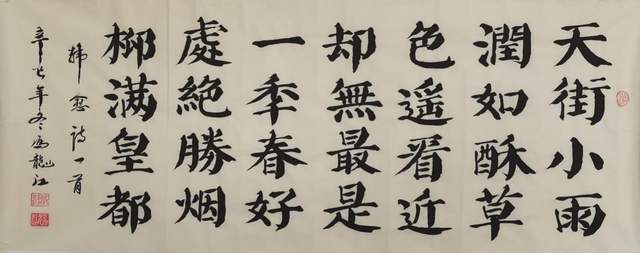 天街小雨
潤如酥草
色遥看近
却無最是
一秊春好
處絶勝烟
柳满皇都
韩愈诗一首
辛巳年冬龍江